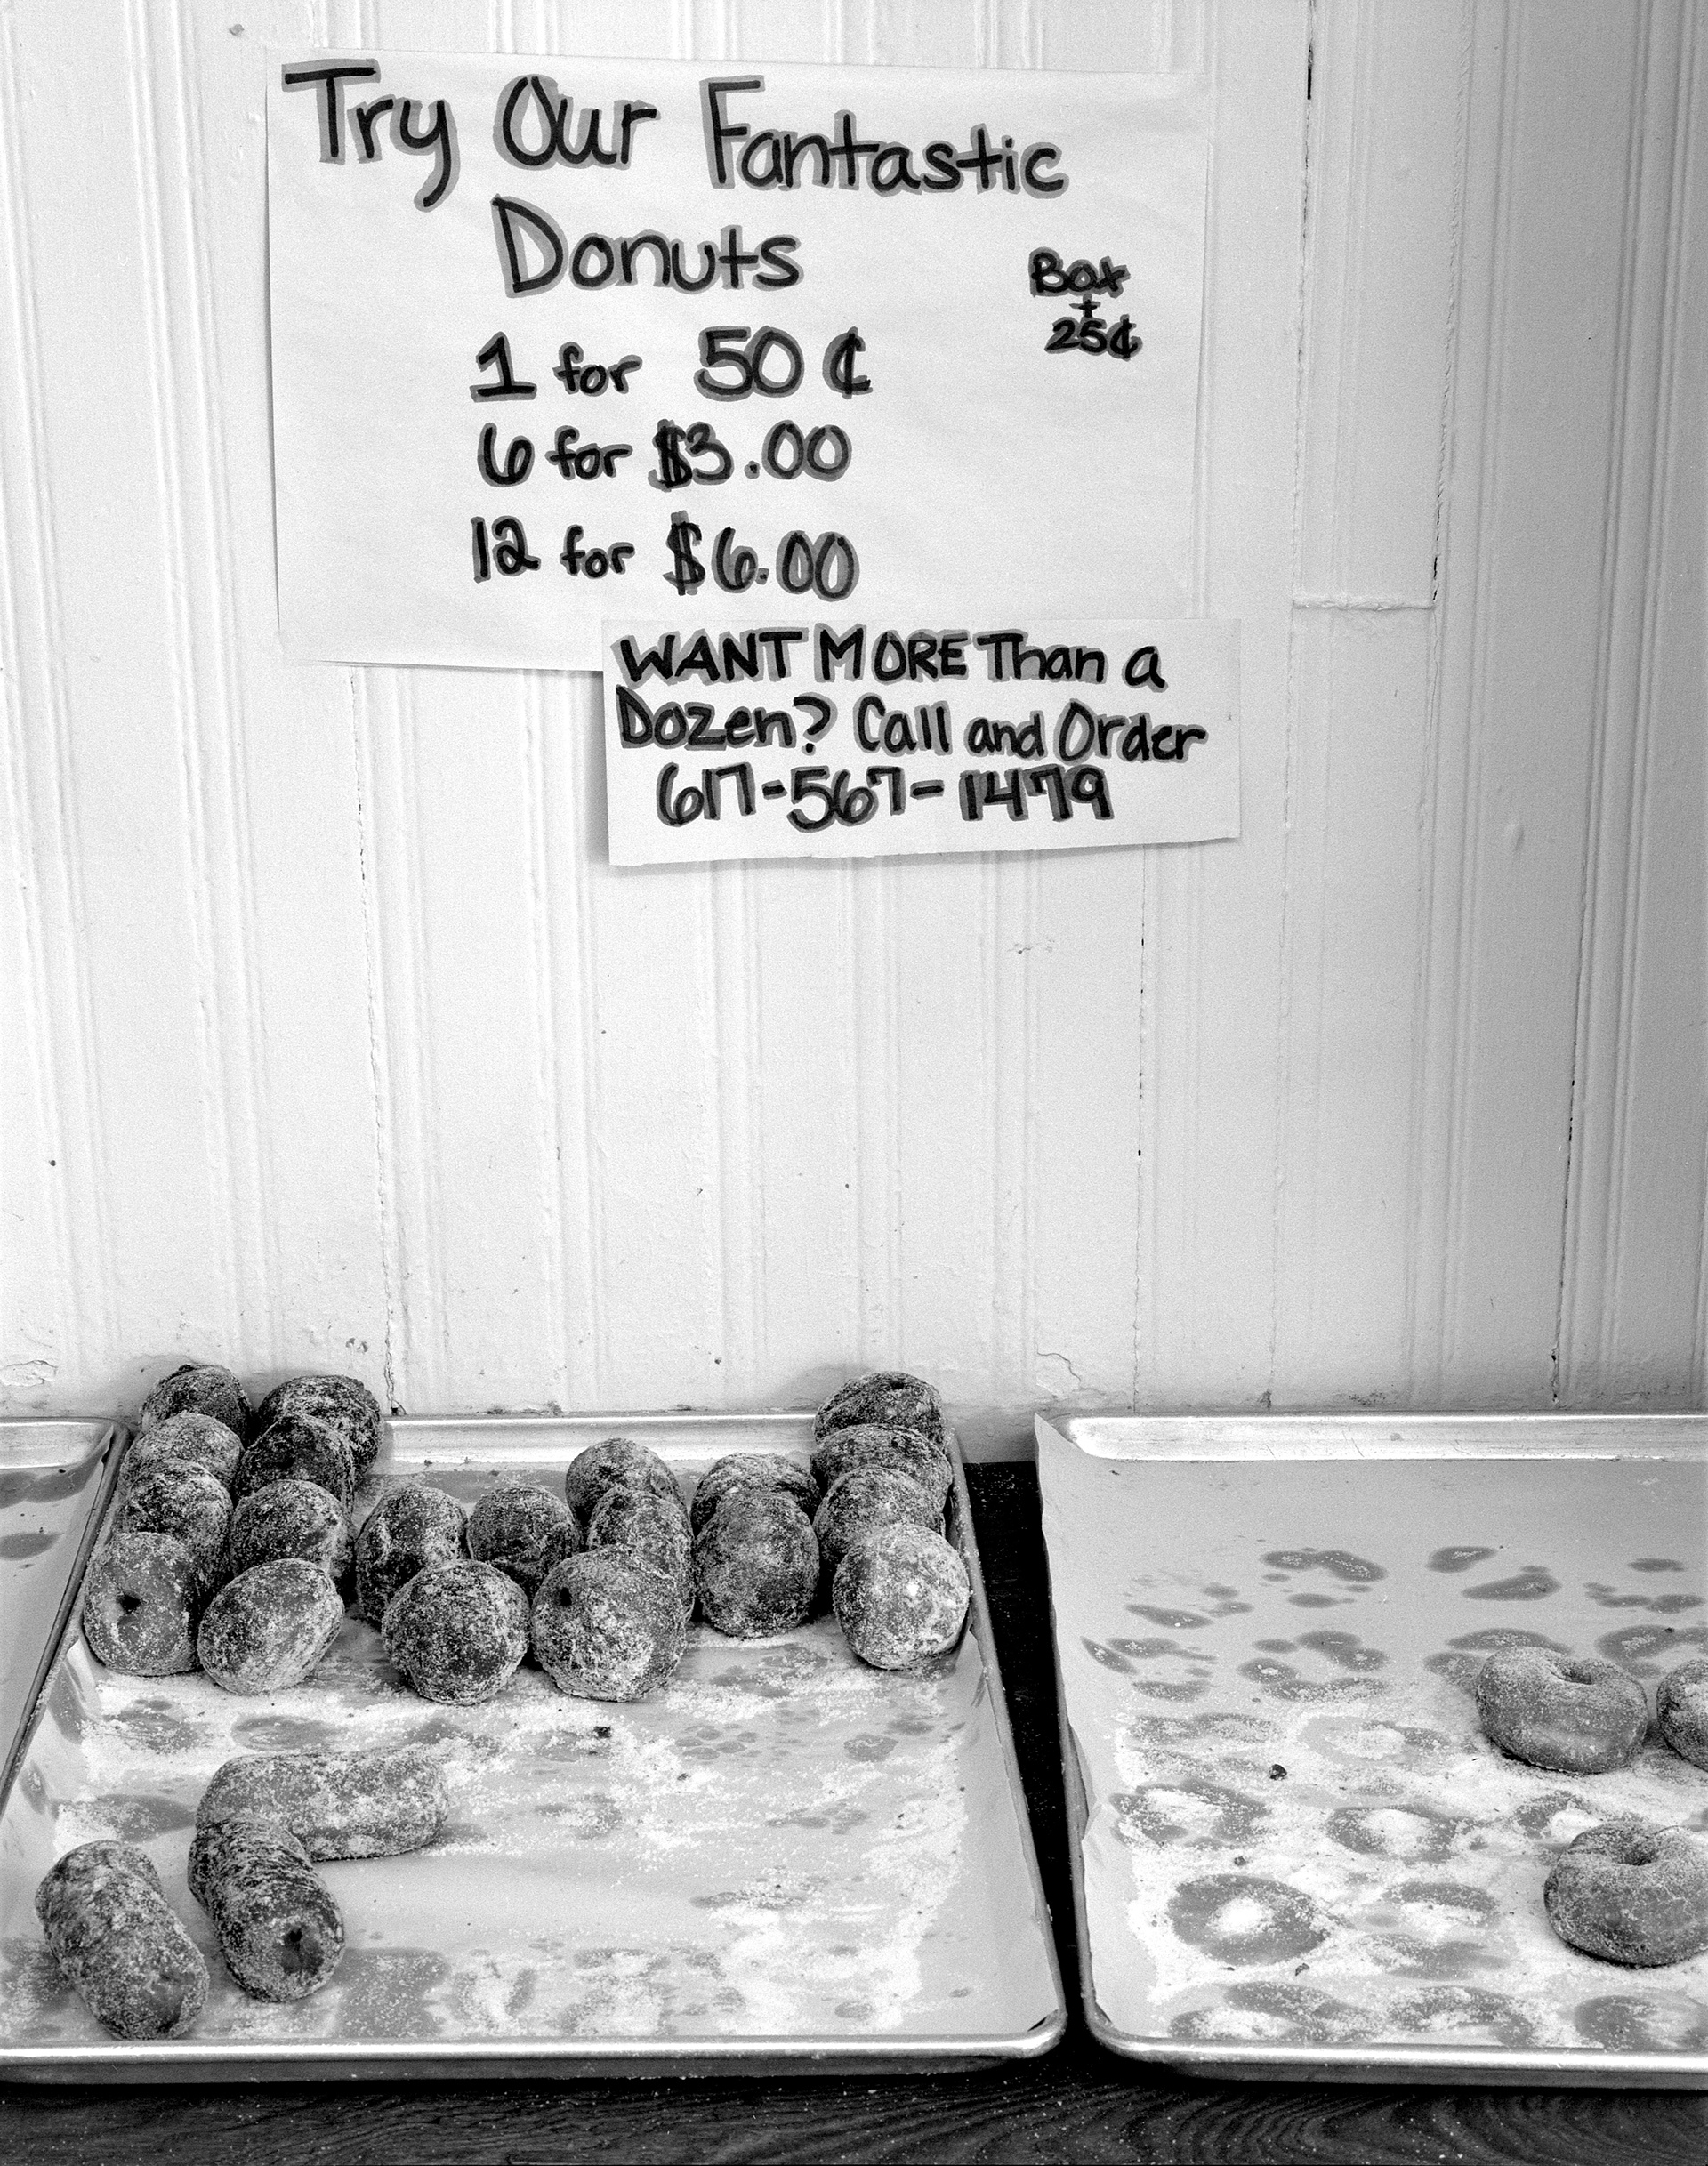 Try Our Fantastic
Donuts
Box
+
25¢
1 for 50¢
6 for $3.00
12 for $6.00
WANT MORE Than a
Dozen? Call and Order
617-567-1479